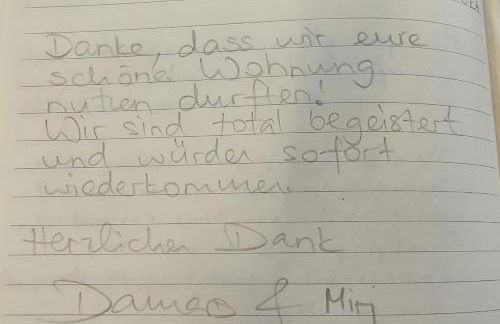 Danke, dass wir eure
schöne Wohnung
nutzen durften!
Wir sind total begeistert
und würden sofort
wiederkommen.
Herzlichen Dank
& Miri